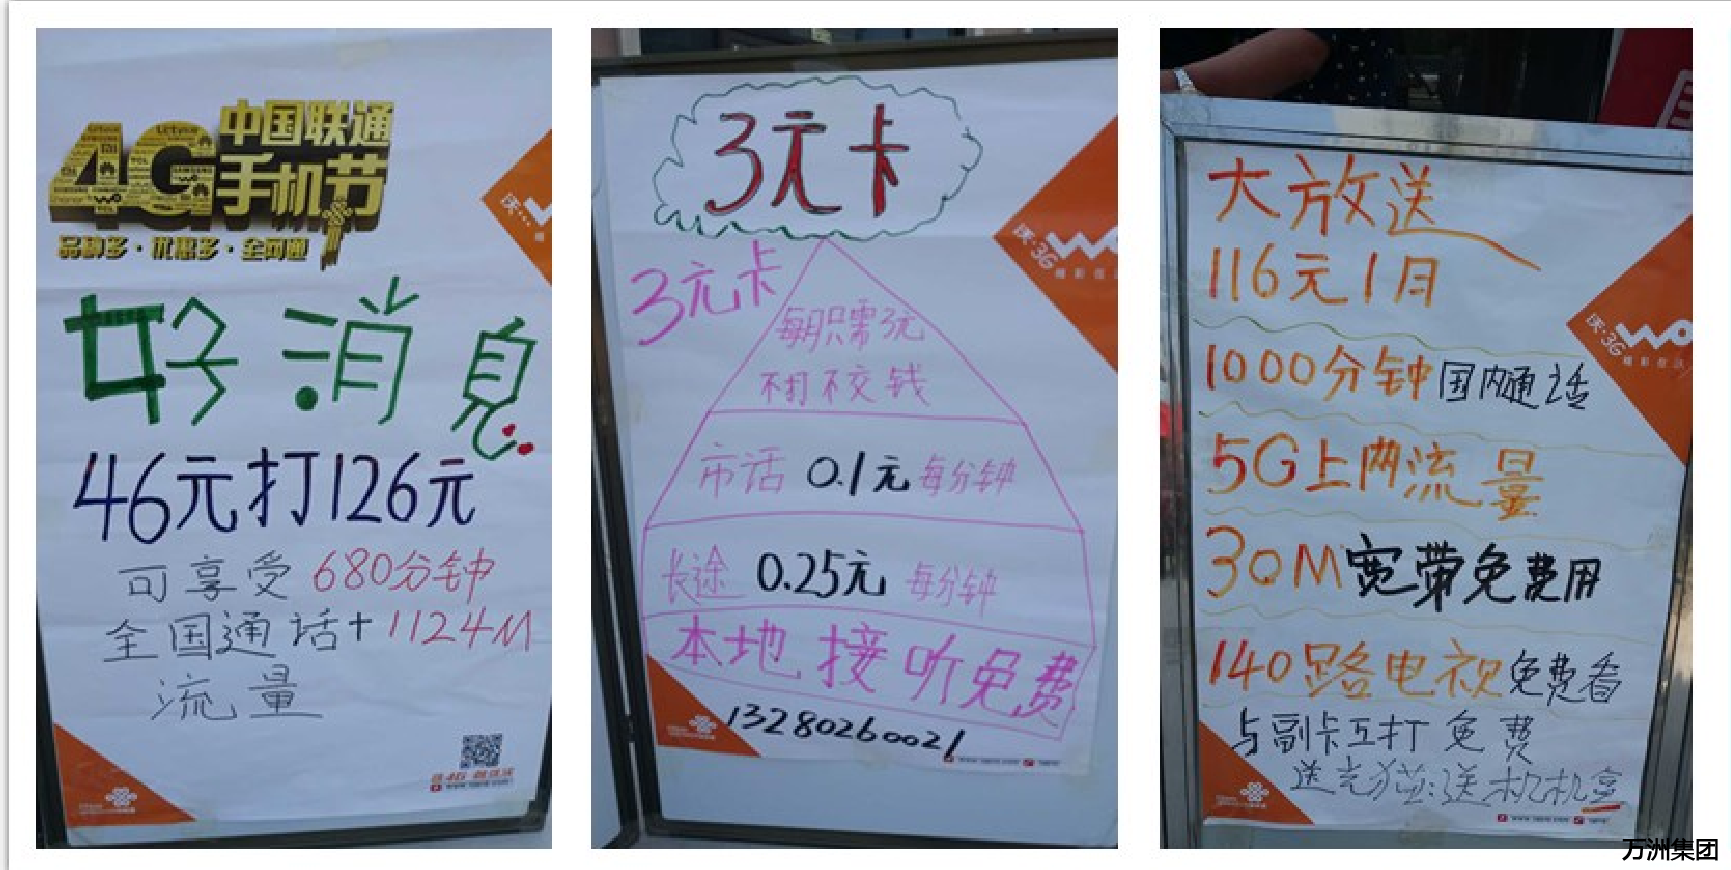 中国联通
4G手机节
品种多·优惠多·全网通
沃
好消息
46元打126元
可享受680分钟
全国通话+1124M
流量
3元卡
沃·3G
精彩在沃
3元卡
每月只需3元
不打不交钱
市话 0.1元 每分钟
长途 0.25元 每分钟
本地接听免费
13280260021
大放送
116元1月
沃·3G
精彩在沃
1000分钟国内通话
5G上网流量
30M宽带免费用
140路电视免费看
与副卡互打免费
送光猫:送机机盒
万洲集团